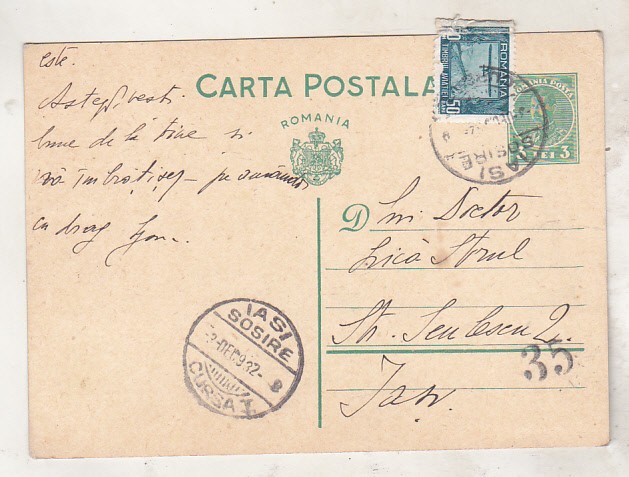 este.
Aștept vesti
bune de la tine si
vă îmbrățișez pe amândoi
cu drag
CARTA POSTALA
ROMANIA
ROMANIA
TIMBRUL AVIATIEI
50 BANI
ROMANIA POSTA
LEI 3
IASI
SOSIRE
D Lui Doctor
Lică Strul
Str. 2.
35
Iași
IASI
SOSIRE
3-DEC 932-8
CURSA I